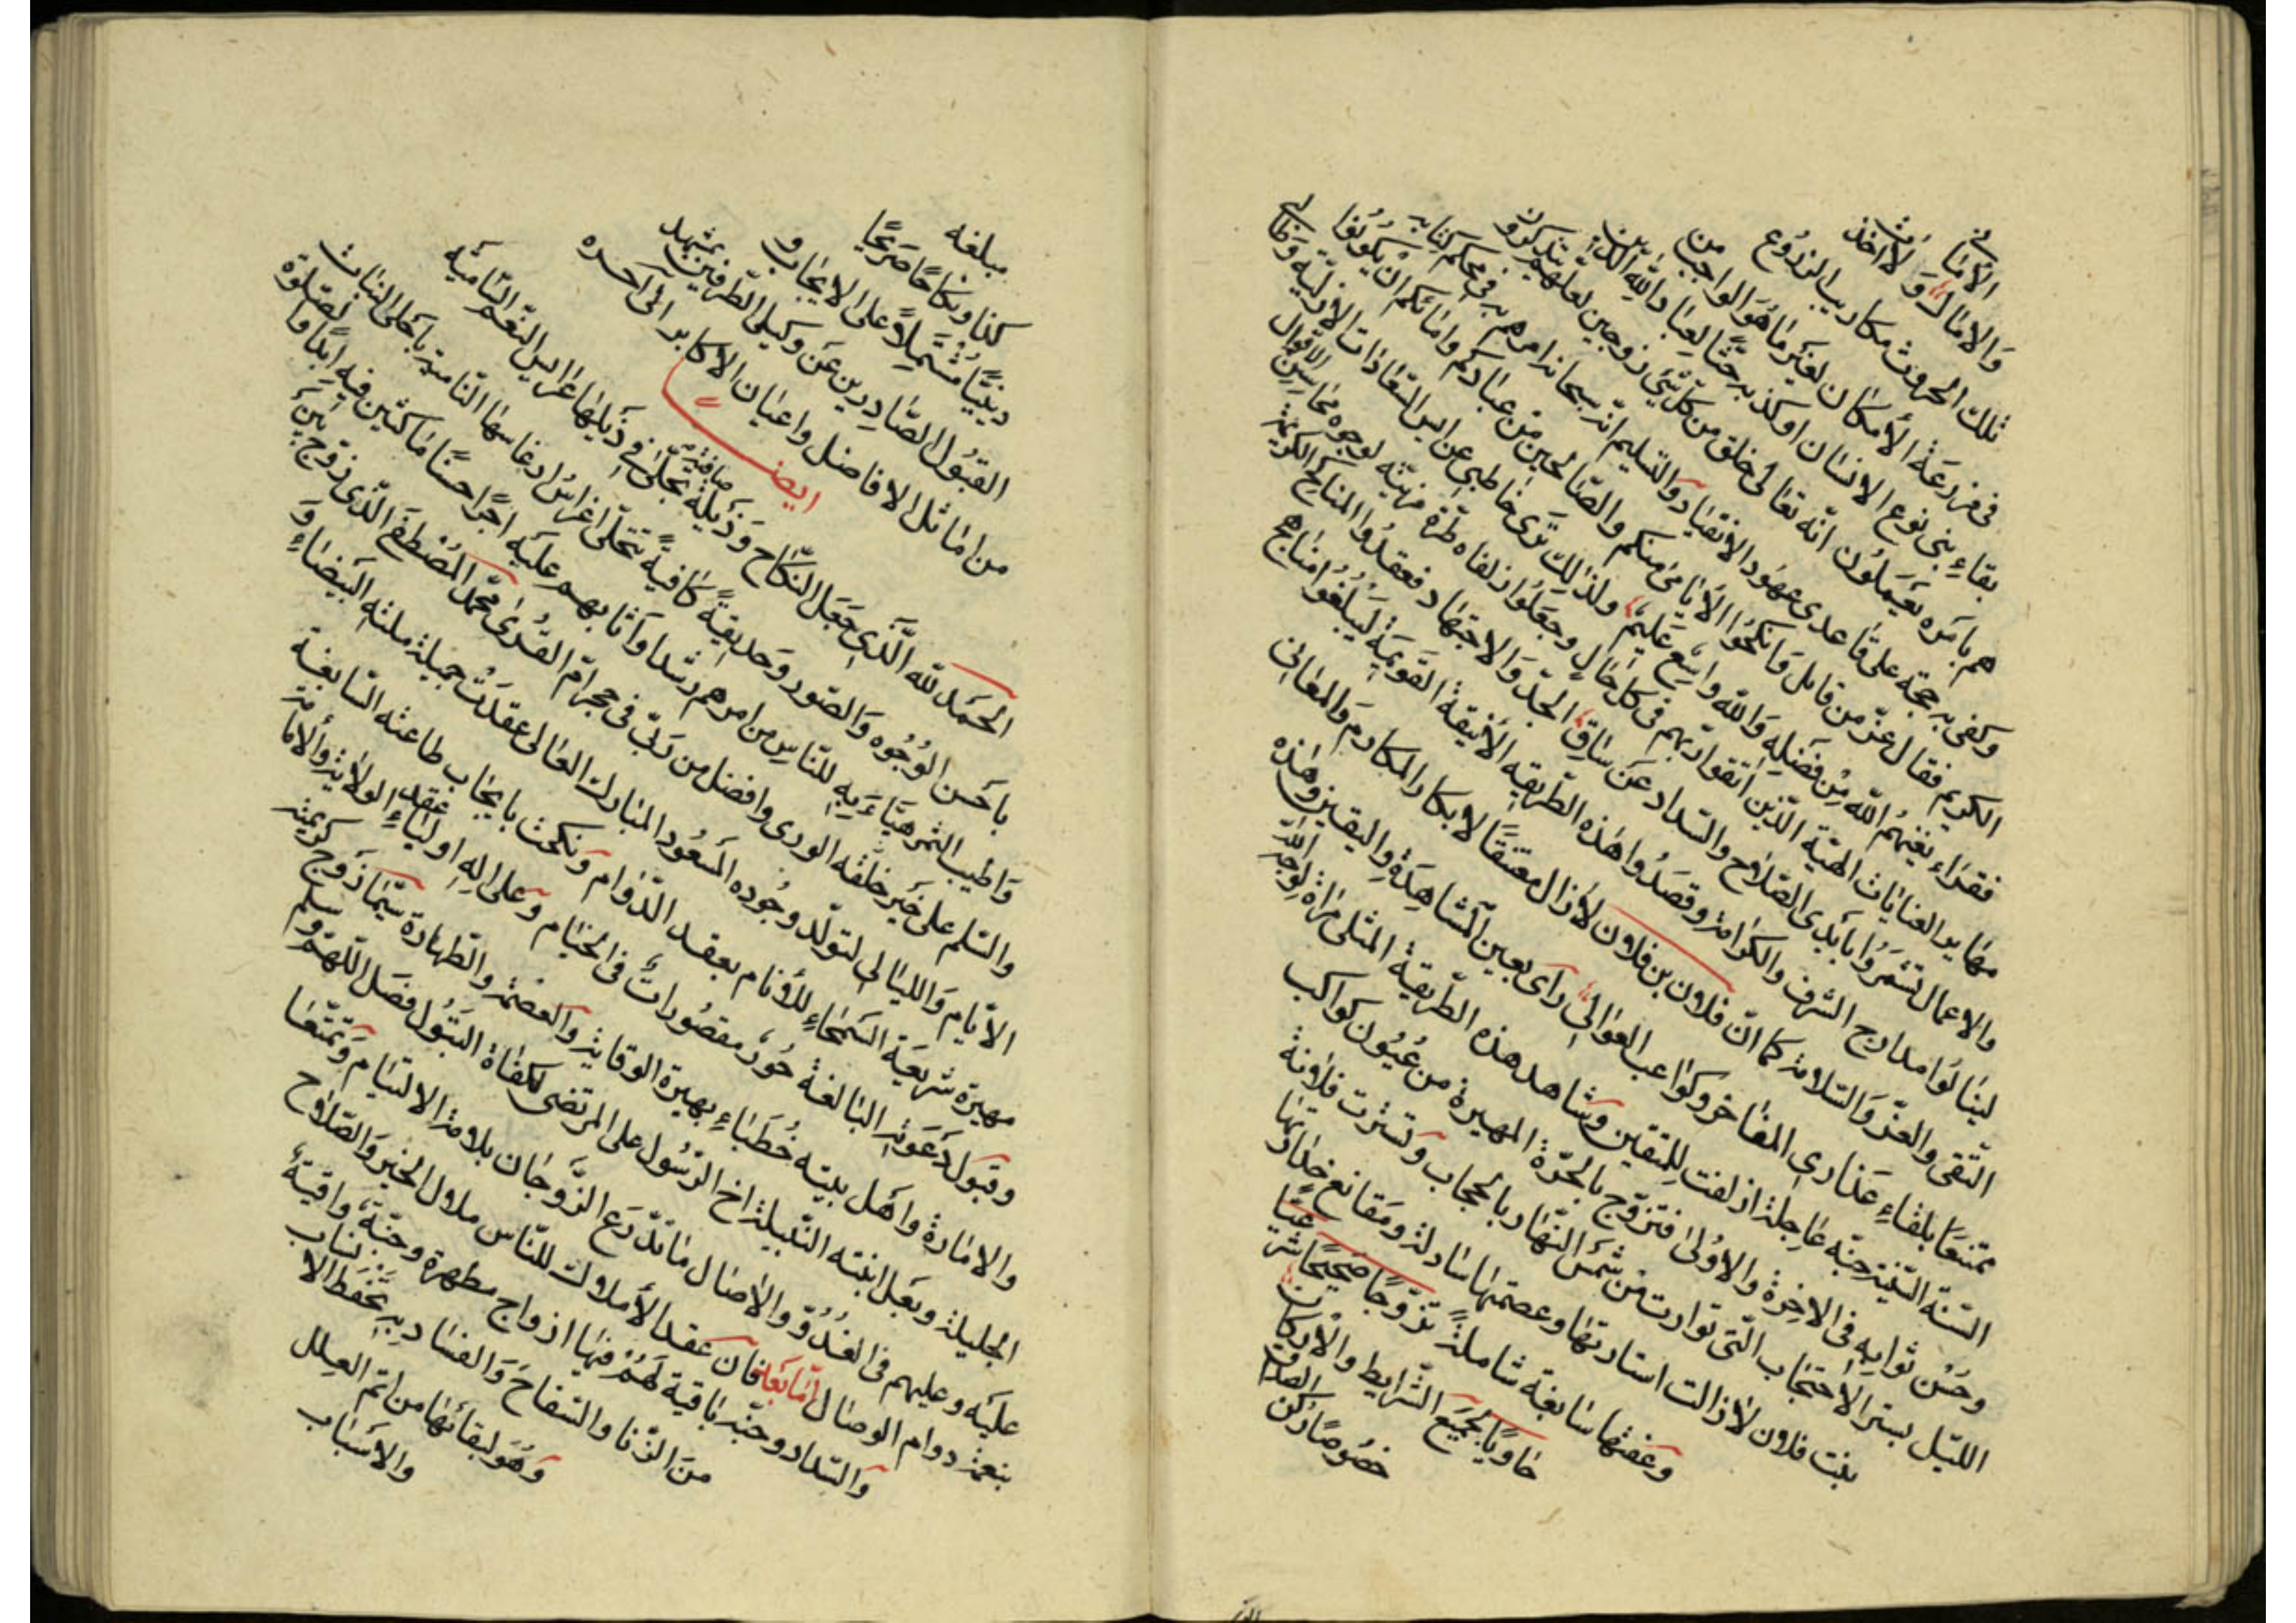 الأماني
والامال ولا اخذت
تلك الحروث مكاريب الزروع
في مزرعة الأمكان لغير ما هو الواجب من
بقاء بني نوع الانسان اوكد به حثًّا لعباد الله الذين
هم بامره يعملون انّه تعالى خلق من كلّ شيئ زوجين لعلهم يتذكرون
وكفى به حجة على قاعدى عهود الانقياد والتسليم انّه سبحانه امرهم به في محكم كتابه
الكريم فقال عزّ من قايل وانكحوا الأيامى منكم والصّالحين من عبادكم وامائكم ان يكونوا
فقراء يغنهم الله من فضله والله واسع عليم ولذلك ترى خاطبى عرايس السّعادات الازليّة وطالبى
مهاير العنايات الهيّة الذين اتقوا ربّهم في كل حال وجعلوا زلفاه طرّة مزيّنه لوجوه محاسن الاقوال
والاعمال تشمّروا بايدى الصّلاح والسّداد عن ساق الجدّ والاجتهاد فعقدوا المناكح الكريمة
لينالوا مدارج الشرف والكرامة وقصدوا هذه الطّريقه الأنيقة القويمة ليبلغوا مناهج
التّقى والعزّ والسّلامة كما انّ فلان بن فلان لازال معتنقًا لابكار المكارم والمعالى
متمتعًا بلقاء عذارى المفاخر وكواعب العوالى رأى بعين المشاهدة واليقين وهذه
السّنّة السّنيّة جنّه عاجلة ازلفت للمتقين وشاهد هذه الطّريقة المثلى مراة لوجه الله
وحسن ثوابه فى الاخرة والاولى فتزوّج بالحرّة المهيرة من عيون كواكب
اللّيل بستر الاحتجاب الّتى توارت من شمس النّهار بالحجاب وتسترت فلانة
بنت فلان لازالت استار تقاوعصمتها سادلة ومقانع خدارتها
وعفّتها سابغة شاملةً تزوّجًا صحيحًا شرعيّا
حاويًا لجميع الشّرايط والأركان
خصوصًا ركن الصداق
مبلغه
كذا ونكاحًا صريحًا
دينيًّا مشتملاً على الايجاب و
القبول الصّادرين عن وكيلى الطّرفين بمشهد
من اماثل الافاضل واعيان الاكابر الى آخره
ايضـًا
الحمد لله الّذى جعل النّكاح وذيلة صافية تجلّى فى ذيلها عرايس النّعم النّامية
باحسن الوجوه والصّور وحديقةً كافيةً تتحلّى اغراس ارغاسها النّامية باحلى النبات
واطيب الثمر هيّاء به للنّاس من امرهم رشدا واثابهم عليه اجرًا حسنًا ماكثين فيه ابدًا والصّلوة
والسّلم على خير خلقه الورى وافضل من ربّى فى حجر امّ القرى محمّد المصطفى الّذى زوّج بين
الأيّام واللّيالى لتولّد وجوده المسعود المبارك العالى عقدت جميلة ملّته البيضاء و
مهيرة شريعة السّمحاء للأنام بعقد الدّوام ونكحت بايجاب طاعته السّابغة
وقبول دعوته البالغة حور مقصورات فى الخيام وعلى اله اولياء عقد الولاية والامامة
والامارة واهل بيته خطباء بهيرة الوقاية والعصمة والطّهارة سيّما زوج كريمته
الجليلة وبعل ابنته النّبيلة اخ الرّسول على المرتضى لكفاة البتول فصل اللّهمّ وسلم
عليه وعليهم فى الغدوّ والأصال ما تدّرع الزّوجان بلامة الالتيام وتمتّعا
بنعمة دوام الوصال امّا بعد فان عقد الأملاك للنّاس ملال الخير والصّلاح
والسّداد وجنّة باقية لهم فيها ازواج مطهرة وجنّة واقية
من الزّنا والسّفاح والفساد به تحفظ الانساب
وهو لبقائها من اتم العلل
والأسباب